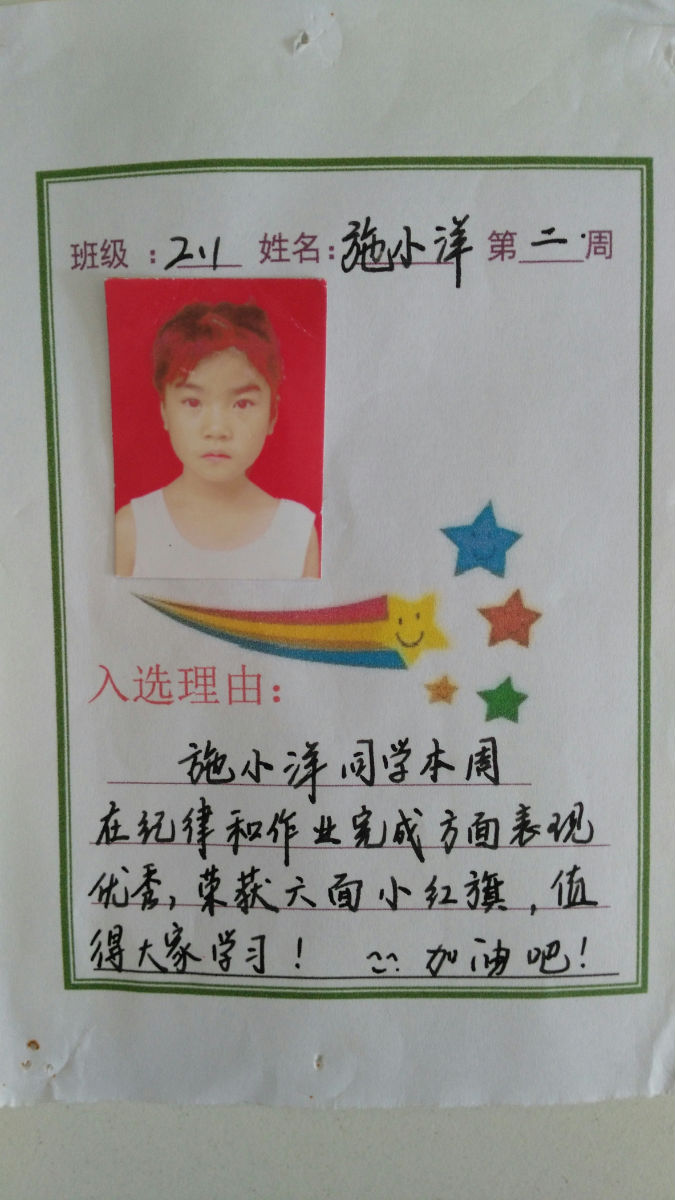 班级：2.1 姓名：施小洋 第二.周
入选理由：
施小洋同学本周
在纪律和作业完成方面表现
优秀，荣获六面小红旗，值
得大家学习！ 加油吧！